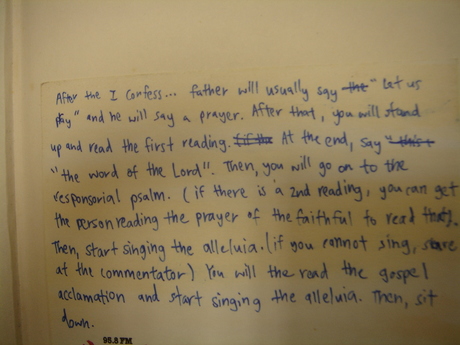 After the I Confess... father will usually say the "Let us
pray" and he will say a prayer. After that, you will stand
up and read the first reading. At the end, say "this i
"the word of the Lord". Then, you will go on to the
responsorial psalm. (if there is a 2nd reading, you can get
the person reading the prayer of the faithful to read that).
Then, start singing the alleluia. (if you cannot sing, stare
at the commentator) You will the read the gospel
acclamation and start singing the alleluia. Then, sit
down.
95.8FM